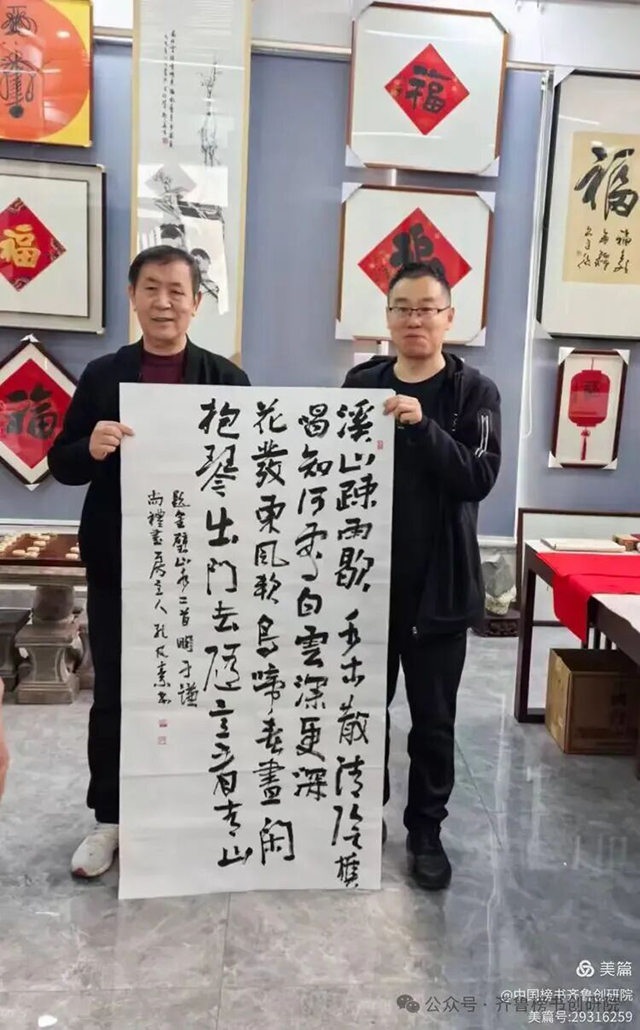 溪山疎雨歇禾木散清陰樵
唱知何處白雲深更深
花發東風軟鳥啼春晝閑
抱琴出門去隨意看青山
題金碧山水二首明于謙
尚禮畫房主人孔凡素書
福
福
福
福
福
美篇
@中国榜书齐鲁创研院
公众号·齐鲁榜书创研院
美篇号:29316259